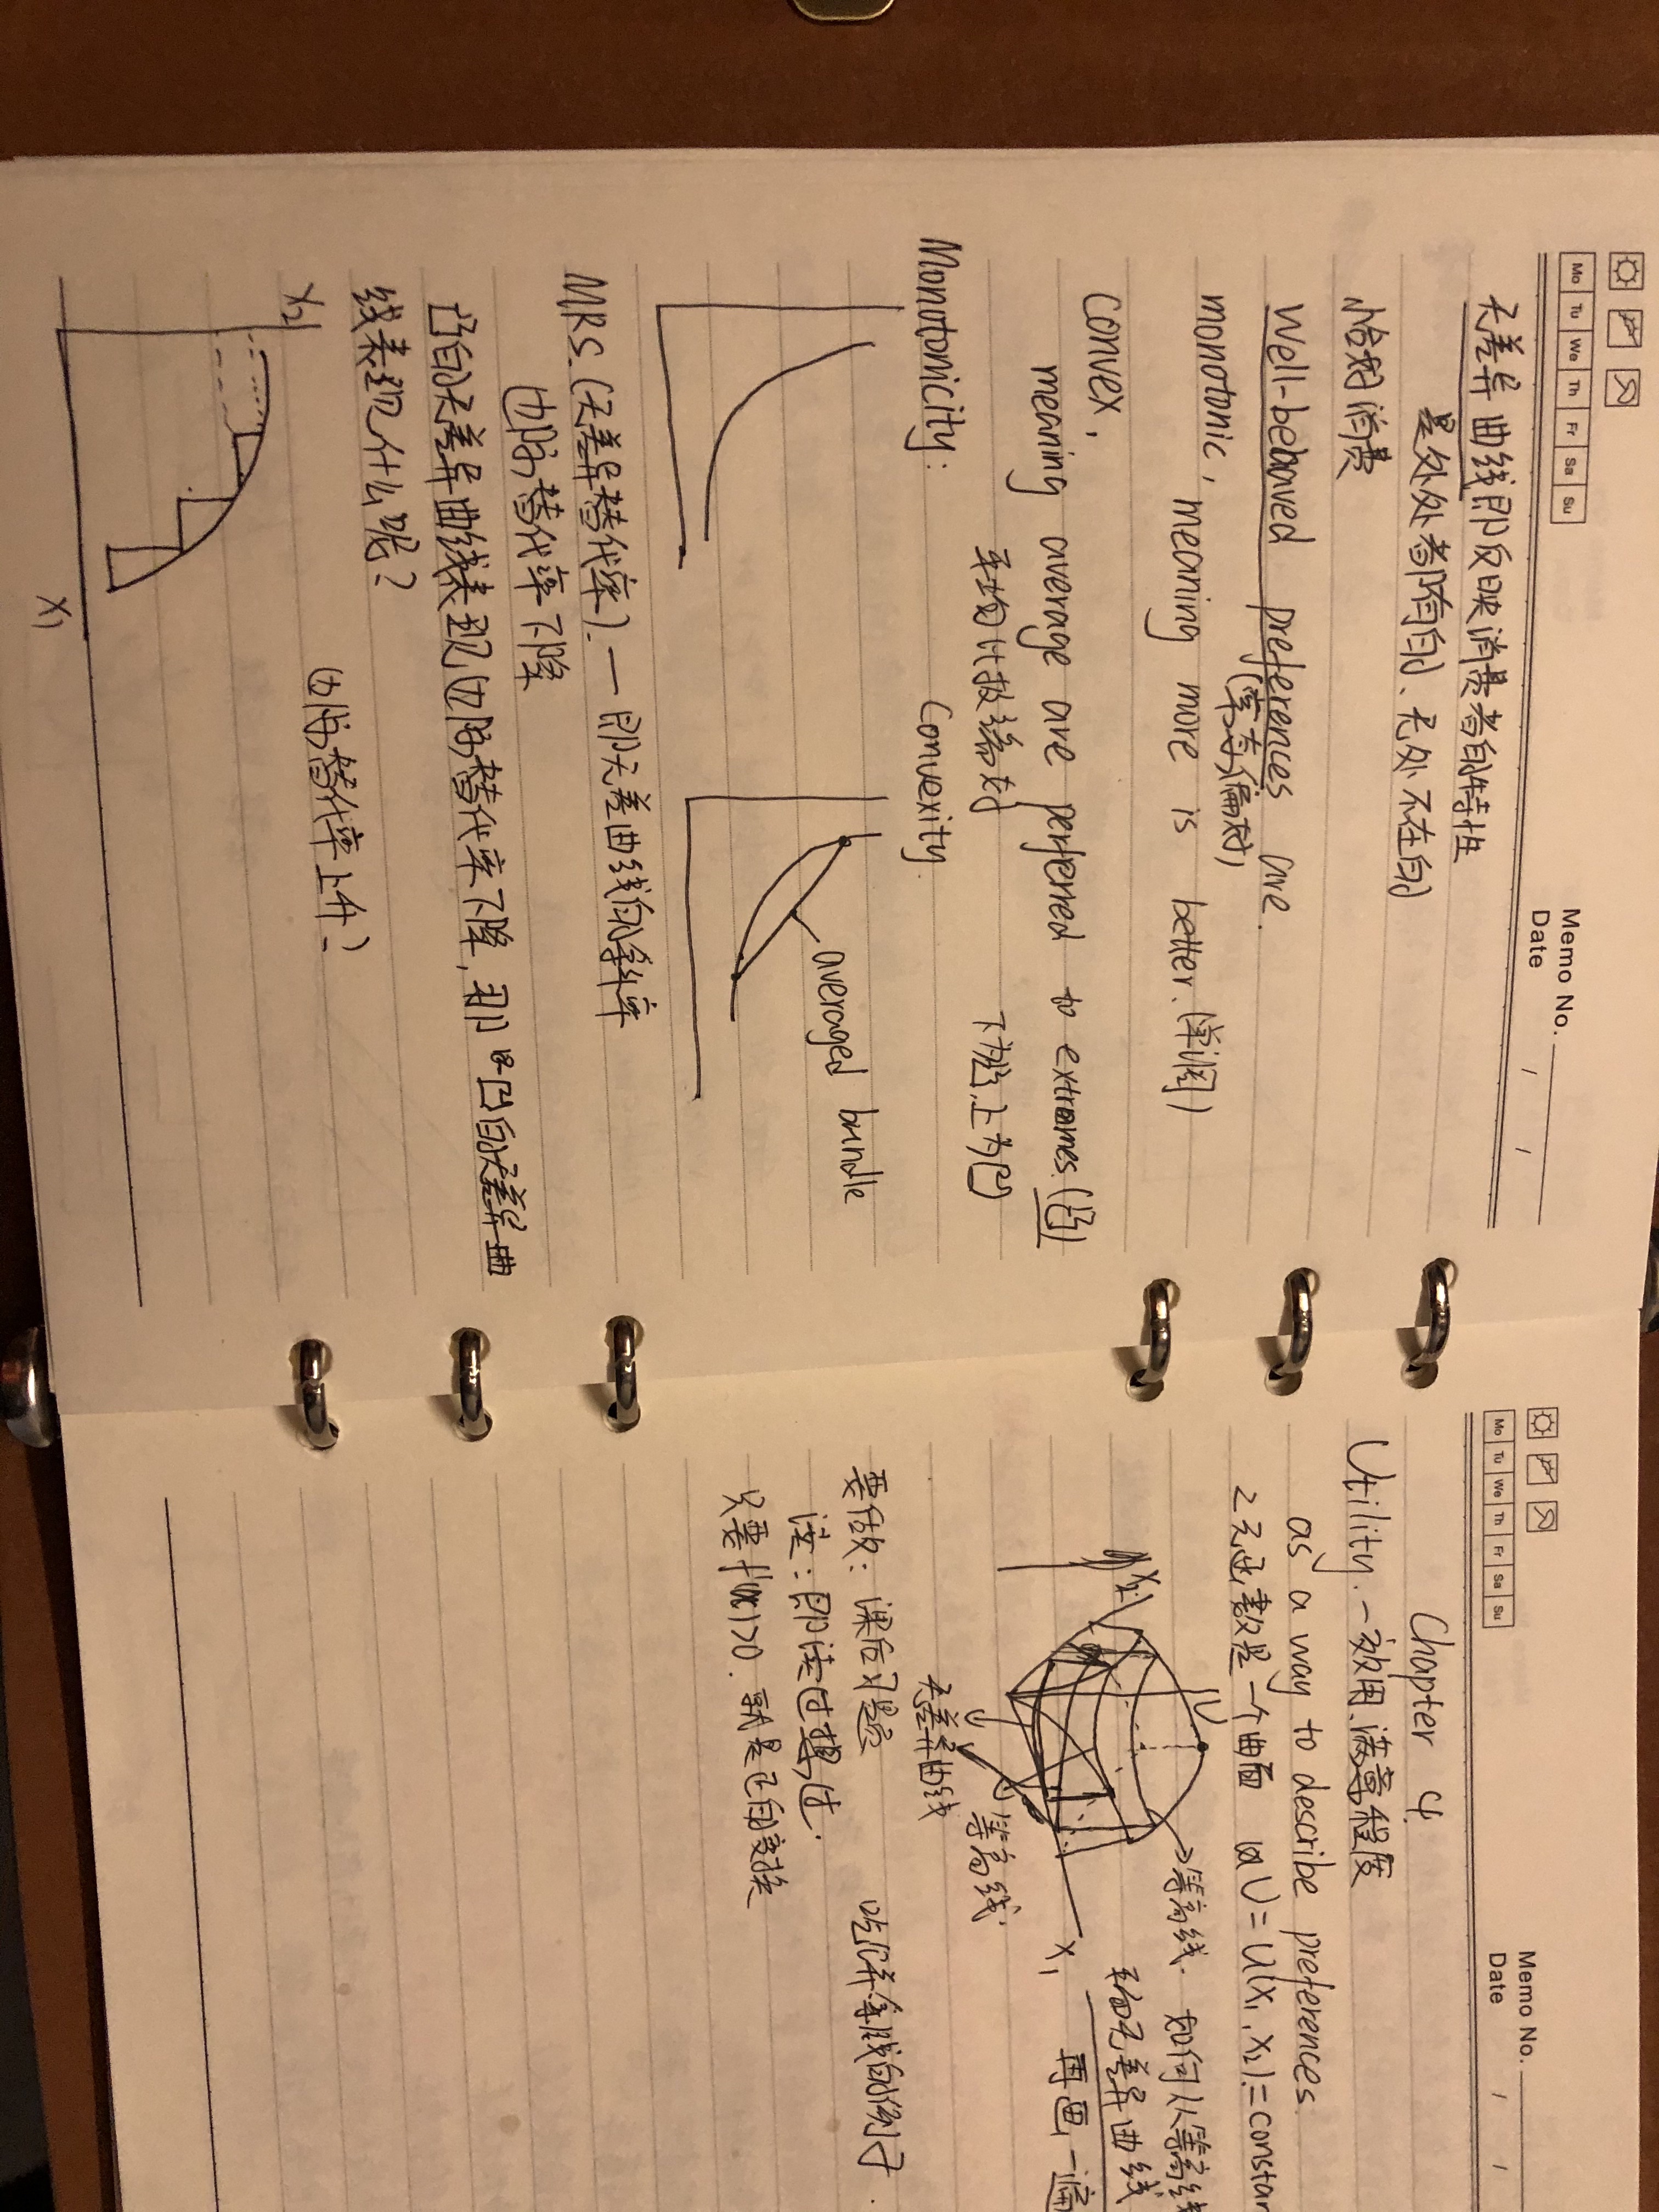 Mo Tu We Th Fr Sa Su
Memo No.
Date / /
无差异曲线即反映消费者的特性
是处处都有的、无处不在的
恰好消费
Well-behaved preferences are.
(常态偏好)
monotonic, meaning more is better. (单调)
Convex,
meaning average are perferred to extrames. (凸)
平均比极端好
下为凸,上为凹
Monotonicity:
Convexity
averaged bundle
MRS.(无差异替代率).一即无差曲线的斜率
边际替代率下降
凸的无差异曲线表现边际替代率下降,那凹的无差异曲
线表现什么呢?
边际替代率上升?
X2
X1
Mo Tu We Th Fr Sa Su
Memo No.
Date / /
Chapter 4.
Utility.一效用.满意程度
as a way to describe preferences.
2元函数是一个曲面 U=U(X1,X2)=constan
X2
U
→等高线. 如何从等高线
无差异曲线
X1
再画一遍
等高线.
无差异曲线
要做:课后习题
吃饼筹钱的例子.
读:即读过
只要f'(x)>0.就是正的变换